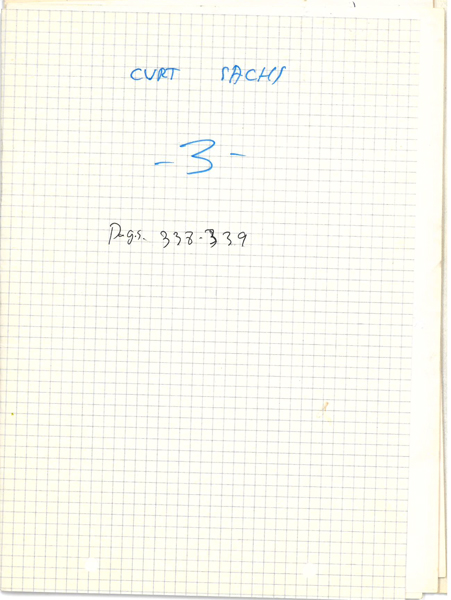 CURT SACHS
-3-
Pags. 338-339